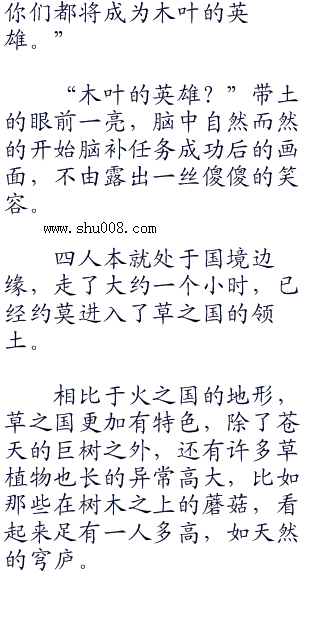 你们都将成为木叶的英
雄。”
“木叶的英雄？”带土
的眼前一亮，脑中自然而然
的开始脑补任务成功后的画
面，不由露出一丝傻傻的笑
容。
www.shu008.com
四人本就处于国境边
缘，走了大约一个小时，已
经约莫进入了草之国的领
土。
相比于火之国的地形，
草之国更加有特色，除了苍
天的巨树之外，还有许多草
植物也长的异常高大，比如
那些在树木之上的蘑菇，看
起来足有一人多高，如天然
的穹庐。